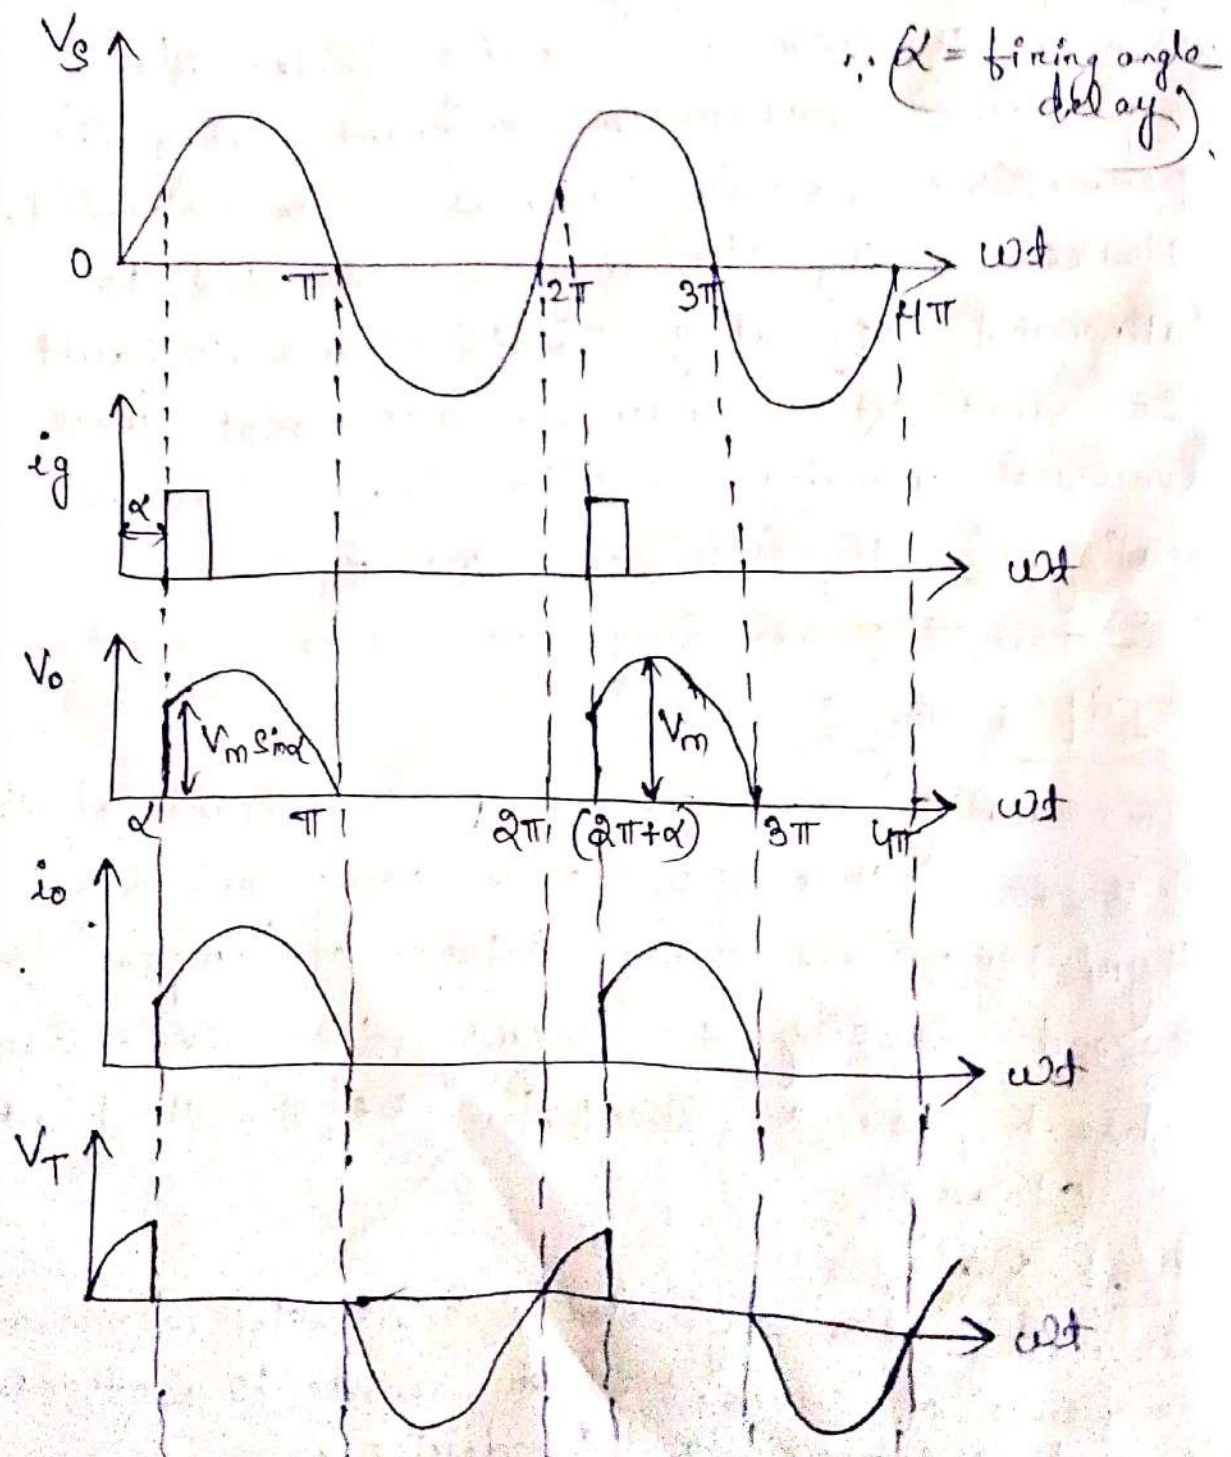 Vs
∴ (α = firing angle
delay).
0 π 2π 3π 4π ωt
ig
α
ωt
Vo
Vm sinα
Vm
α π 2π (2π+α) 3π 4π ωt
io
ωt
VT
ωt